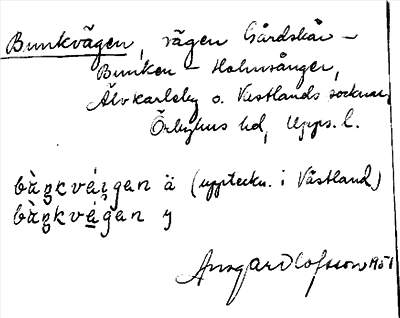 Bunkvägen, vägen Gårdskär -
Bunken - Holmsånger,
Älvkarleby o. Västlands socknar,
Örbyhus hd, Upps. l.
bàŋkvéi̯gan ä (uppteckn. i Västland)
bàŋkvé̱gan y
Ansgar Olofsson 1951